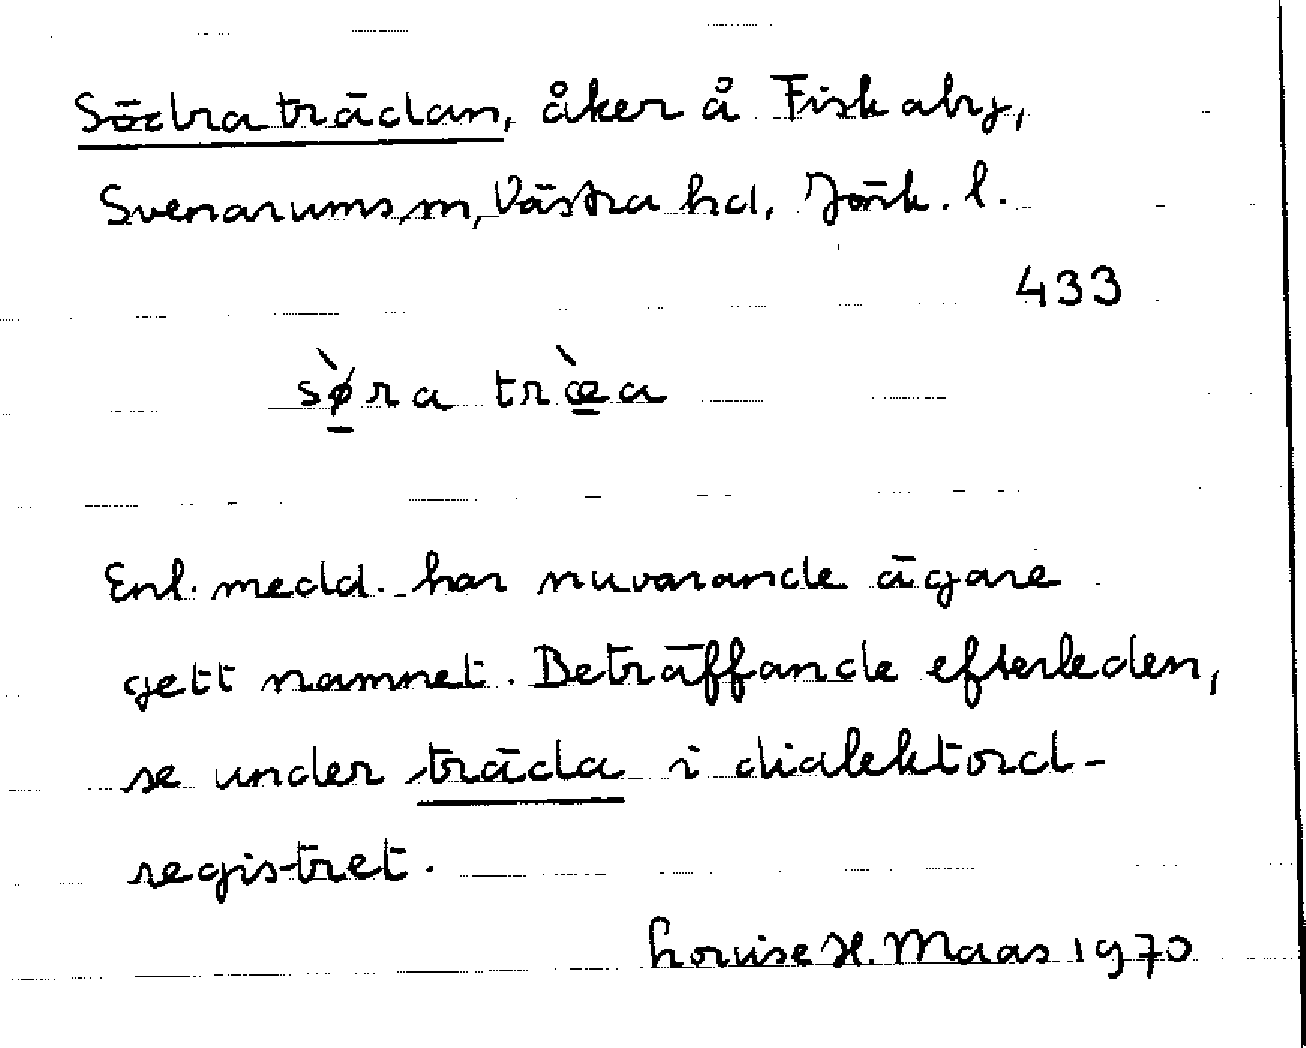 Södra trädan, åker å Fiskaby,
Svenarums sn, Västra hd, Jönk. l.
433
sø̱̀ra træ̱̀a
Enl. medd. har nuvarande ägare
gett namnet. Beträffande efterleden,
se under träda i dialektord-
registret.
Louise H. Maas 1970